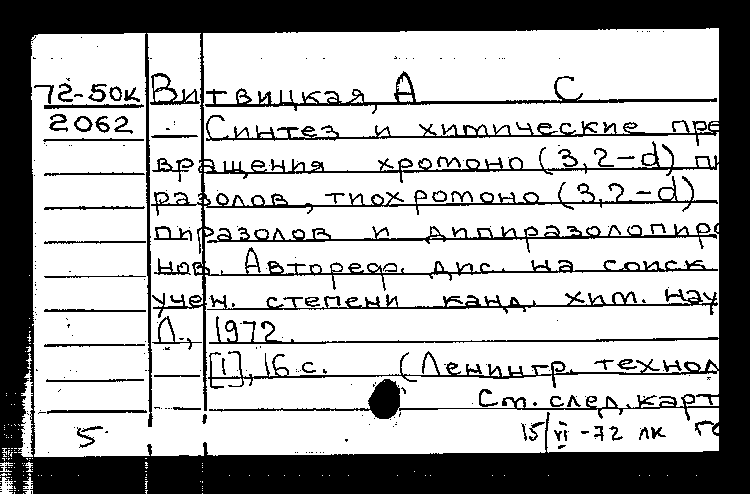 72-50к Витвицкая, А С
2062 Синтез и химические пре
вращения хромоно (3,2-d) пи
разолов, тиохромоно (3,2-d)
пиразолов и дипиразолопиро
нов. Автореф. дис. на соиск
учен. степени канд. хим. нау
Л., 1972.
[1], 16 с. (Ленингр. технол
См. след. карт
5 15/VI -72 лк